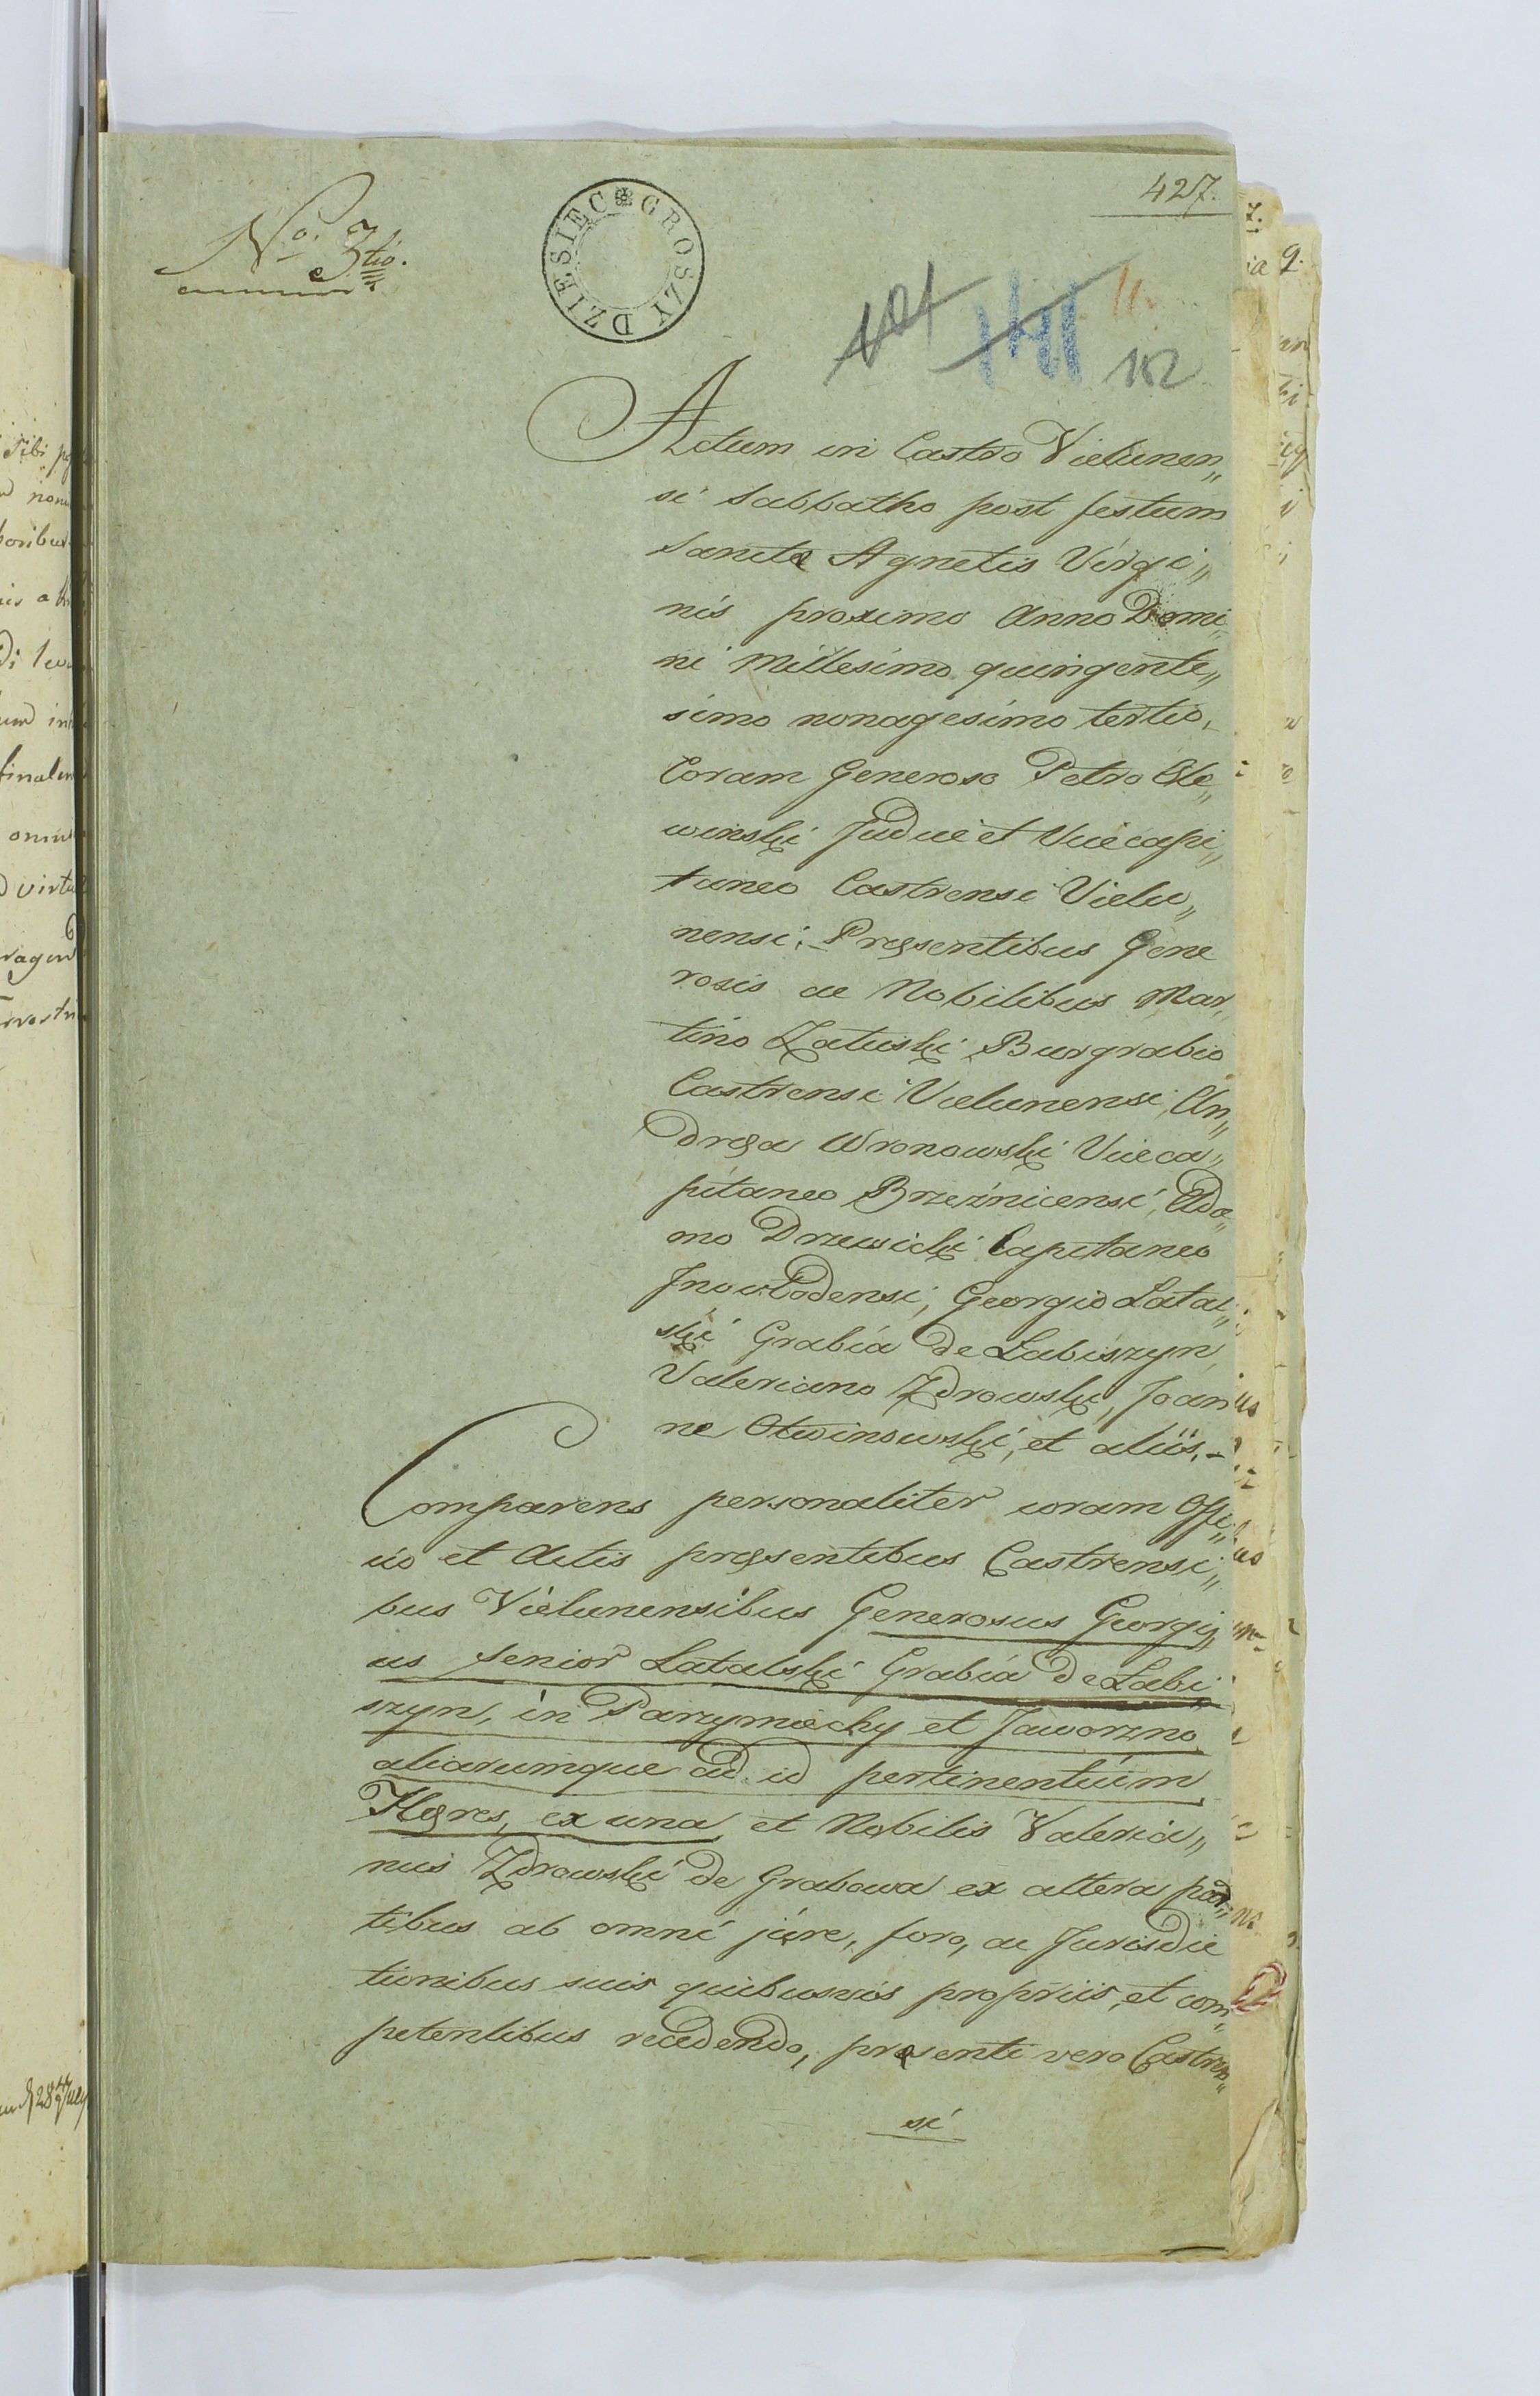 427.
No. 3tio.
DZIESIEC GROSZY
11.
112
Actum in Castro Vielunen„
si Sabbatho post festum
Sanctæ Agnetis Virgi„
nis proximo Anno Domi„
ni Millesimo quingente„
simo nonagesimo tertio.
Coram Generoso Petro Ole„
winski Judice et Vicecapi„
taneo Castrensi Vielu„
nensi. Præsentibus Gene
rosis ac Nobilibus Mar„
tino Załuski Burgrabio
Castrensi Vielunensi, An„
dræa Wronowski Viceca„
pitaneo Brzeźnicensi, Ada„
mo Drzewicki Capitaneo
Inowłodensi, Georgio Latal„
ski Grabia de Labiszyn,
Valeriano Zdrowski, Joan
ne Otwinowski, et aliis.
Comparens personaliter coram Offi„
cio et Actis præsentibus Castrensi„
bus Vielunensibus Generosus Georgi„
us senior Latalski Grabia de Labi„
szyn, in Parzymiechy et Jaworzno
aliarumque ad id pertinentium
Hæres, ex una et Nobilis Valeria„
nus Zdrowski de Grabowa ex altera par„
tibus ab omni jure, foro, ac Jurisdic
tionibus suis quibusvis propriis, et com„
petentibus recedendo, præsenti vero Castren„
si